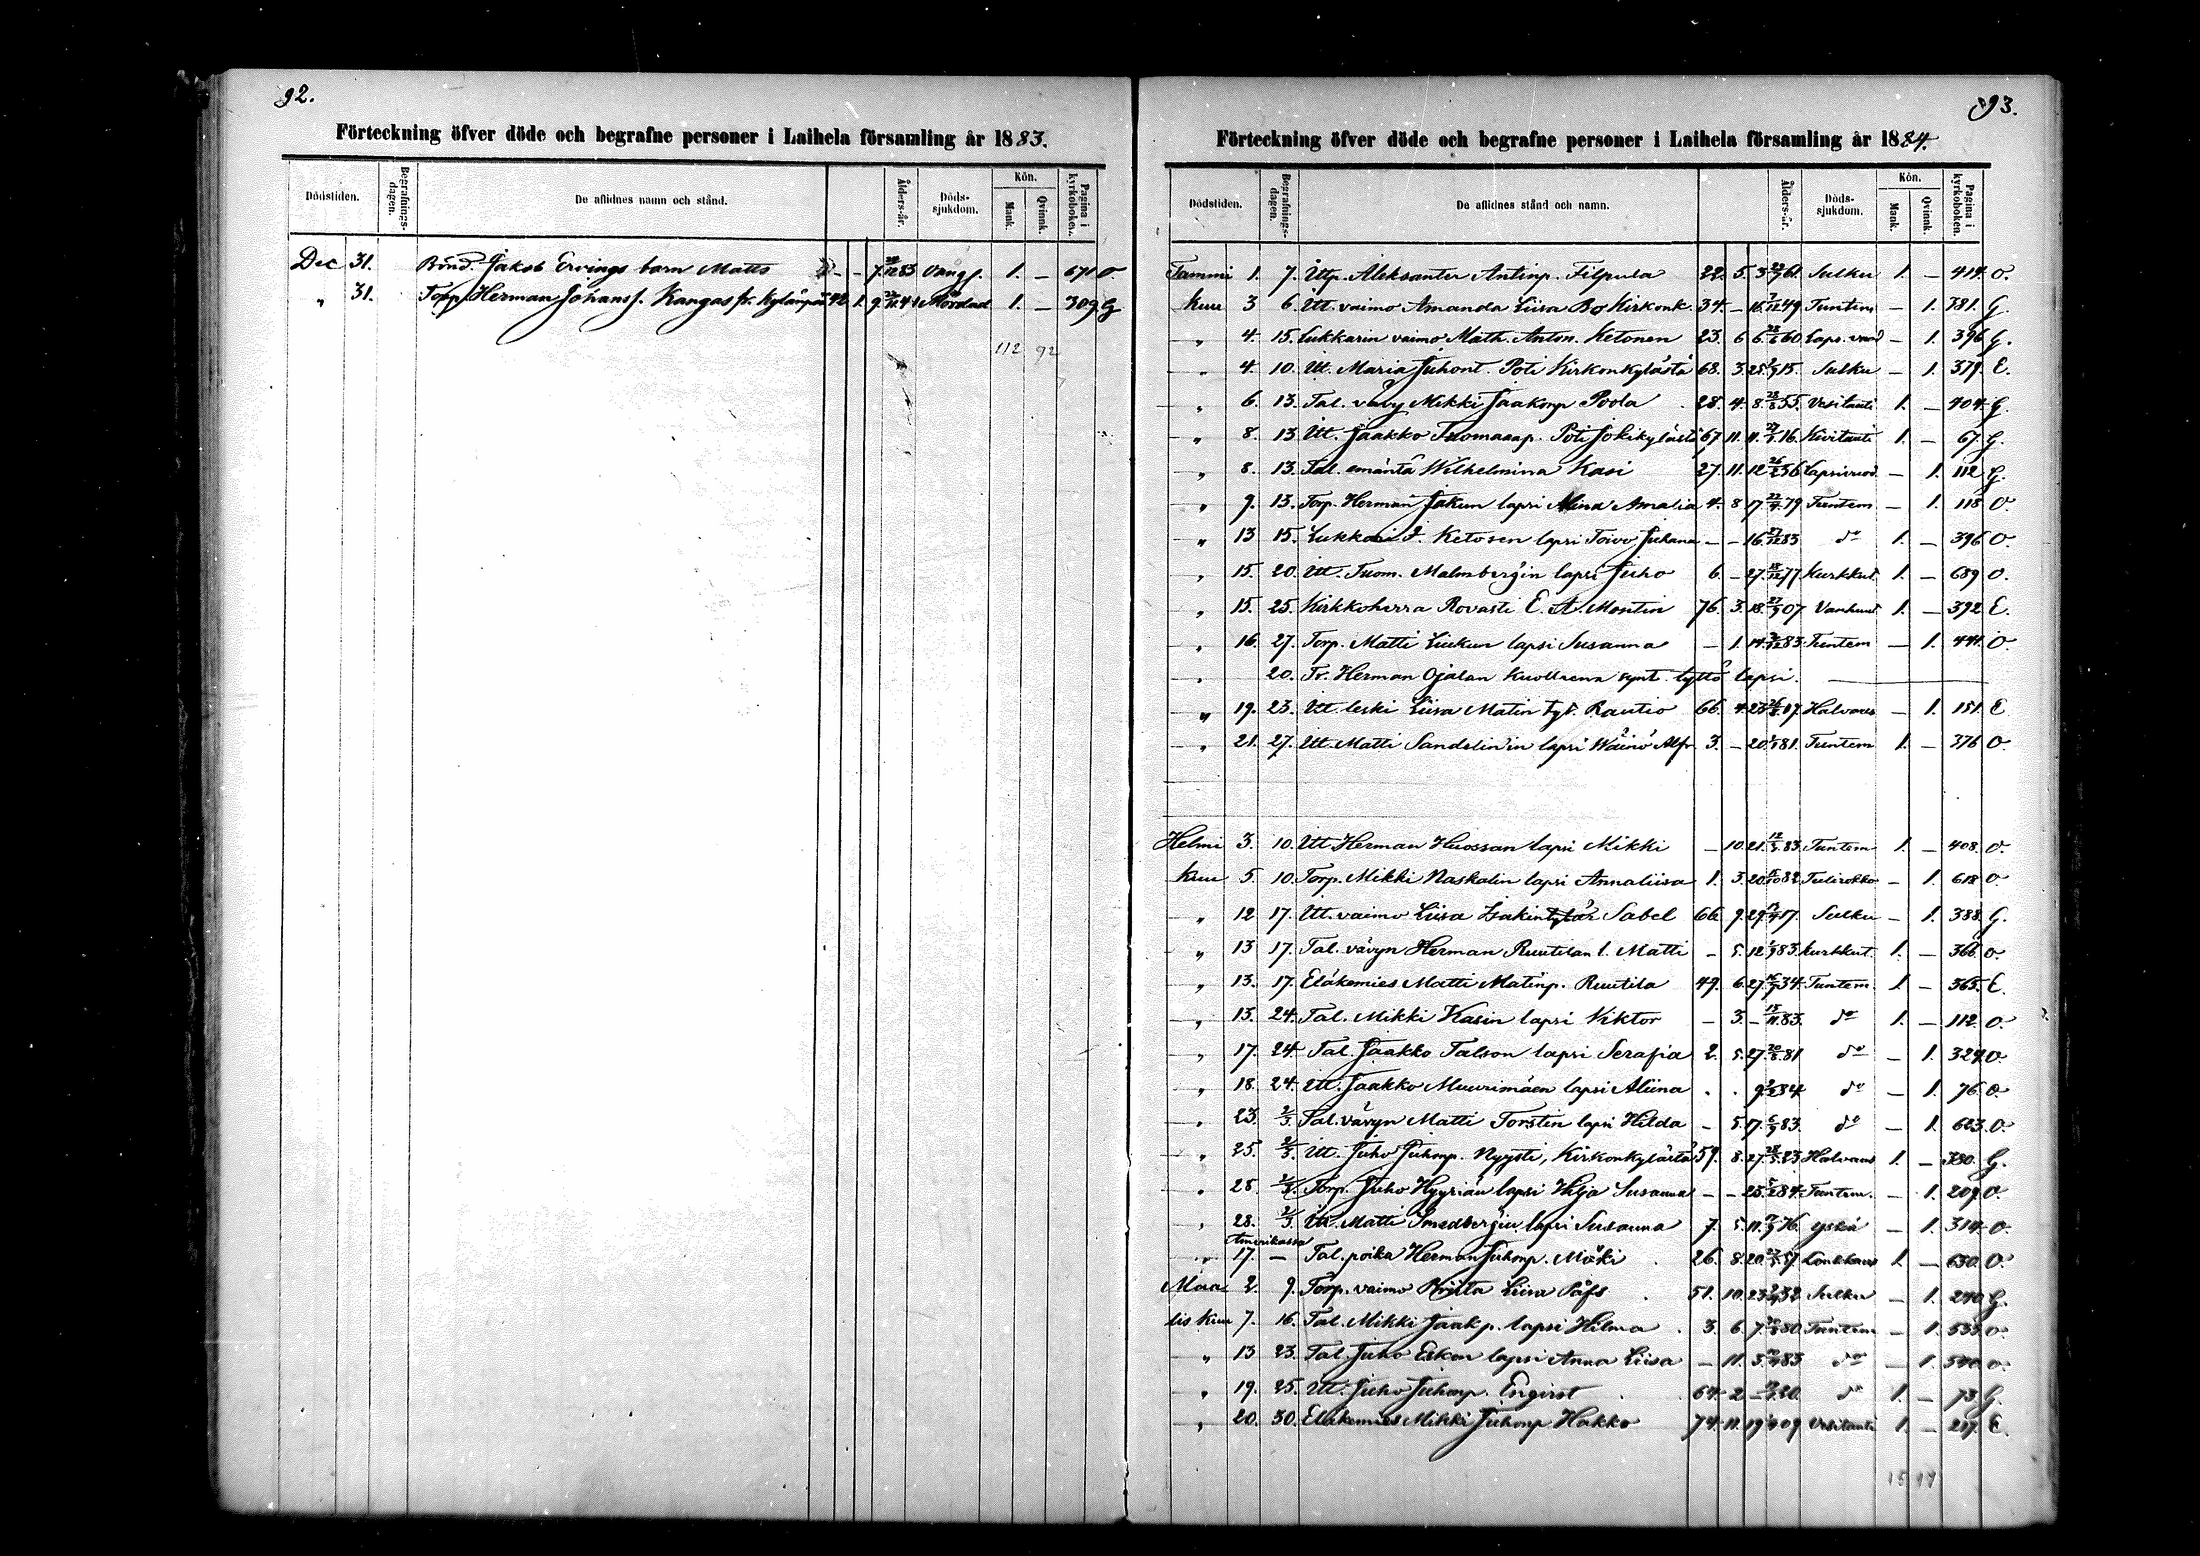 92.
Förteckning öfver döde och begrafne personer i Laihela församling år 1883.
Dödstiden. Begrafnings-dagen. De aflidnes namn och stånd. Ålders-år. Döds-sjukdom. Kön. Mank. Qvinnk. Pagina i kyrkoboken.
Dec 31. Bond. Jakob Ervings barn Matts - - 7. 83 1. - 671 O
" 31. Topp Herman Johans s. Kangas fr. 42. 1. 9. 41 Mördad 1. - 309. G
112 92
93.
Förteckning öfver döde och begrafne personer i Laihela församling år 1884.
Dödstiden. Begrafnings-dagen. De aflidnes stånd och namn. Ålders-år. Döds-sjukdom. Kön. Mank. Qvinnk. Pagina i kyrkoboken.
Tammi 1. 7. Ttp. Aleksanter Antinp. Filpula 22. 5. 3 61. Sulku 1. - 414. O.
kuu 3 6. Itt. vaimo Amanda Liisa Bo Kirkonk. 34. - 16. 49 Tuntem - 1. 381. G.
" 4. 15. Lukkarin vaimo Math. Anton. Ketonen 23. 6 6. 60 Laps. vuod - 1. 396 G.
" 4. 10. Itt. Maria Juhont. Poti Kirkonkylästä 68. 3. 25. 15. Sulku - 1. 379. E.
" 6. 13. Tal. vävy Mikki Jaakonp Poola 28. 4. 8. 55. Vesitauti 1. - 404. G.
" 8. 13 Itt. Jaakko Tuomaanp. Poti Jokikylästä 67. 11. 11. 16. Kivitauti 1. - 67. G.
" 8. 13. Tal. emäntä Wilhelmina Kasi 27. 11. 12 56 Lapsivuod - 1. 112 G.
" 9. 13. Torp. Herman Jakun lapsi Miina Amalia 4. 8 17. 79 Tuntem - 1. 118 O.
" 13 15. Lukkari J. Ketosen lapsi Toivo Juhana - - 16. 83 d:o 1. - 396 O.
" 15. 20. Itt. Tuom. Malmberg'in lapsi Juho 6. - 27. 77 Kurkkut. 1. - 689 O.
" 15. 25. Kirkkoherra Rovasti E. A. Montin 76. 3. 18. 07 Vanhuus 1. - 392 E.
" 16. 27. Torp. Matti Liukun lapsi Susanna - 1. 14. 83. Tuntem - 1. 441. O.
" 20. Tr. Herman Ojalan kuolleena synt. tyttö lapsi.
" 19. 23. Itt. leski Liisa Matin tyt. Rautio 66. 4. 23. 17. Halvaus - 1. 151. E
" 21. 27. Itt. Matti Sandelin'in lapsi Wäinö Alfr. 3. - 20. 81. Tuntem 1. - 376 O.
Helmi 3. 10. Itt Herman Huossan lapsi Mikki - 10. 21. 83. Tuntem 1. - 408. O.
kuu 5. 10. Torp. Mikki Naskalin lapsi Annaliisa 1. 3. 20. 82. Tulirokko - 1. 618 O.
" 12 17. Itt. vaimo Liisa Isakintytär Sabel 66. 9. 29. 17. Sulku - 1. 388. G.
" 13 17. Tal. vävyn Herman Ruutilan l. Matti - 5. 12 83. kurkkut. 1. - 366. O.
" 13. 17. Eläkemies Matti Matinp. Ruutila 49. 6. 27. 34. Tuntem. 1. - 365. E.
" 13. 24. Tal. Mikki Kasin lapsi Viktor - 3. - 83. d:o 1. - 112. O.
" 17. 24. Tal. Jaakko Talson lapsi Serafia 2. 5. 27. 81 d:o - 1. 329. O.
" 18. 24. Itt. Jaakko Muurimäen lapsi Aliina . . 9. 84 d:o - 1. 76. O.
" 23. 2/3. Tal. vävyn Matti Torstin lapsi Hilda - 5. 17. 83. d:o - 1. 623. O.
" 25. 2/3. Itt. Juho Juhonp. Nyysti, Kirkonkylästä 59. 8. 27. 23 Halvaus 1. - 380. G.
" 28. Torp. Juho Hyyriän lapsi Hilja Susanna - - 25. 84. Tuntem. - 1. 209. O.
" 28. 2/3. Itt. Matti Smedbergin lapsi Susanna 7. 5. 11. 76. yskä - 1. 314. O.
Amerikassa
" 17. - Tal. poika Herman Juhonp. Mäki 26. 8. 20. 57. 1. - 630. O.
Maa 2. 9. Torp. vaimo Briita Liisa Påfs 51. 10. 23. 32 Sulku - 1. 240. G.
lis kuu 7. 16. Tal. Mikki Jaakp. lapsi Hilma 3. 6. 7. 80. Tuntem - 1. 533. O.
" 13 23. Tal. Juho Eskon lapsi Anna Liisa - 11. 5. 83 d:o - 1. 540. O.
" 19. 25. Itt. Juho Juhonp. Engvist 64. 2 - 20. d:o 1. - 73 G.
" 20. 30. Eläkemies Mikki Juhonp Hakko 74. 11. 19. 09 Vesitauti 1. - 217. E.
15 17